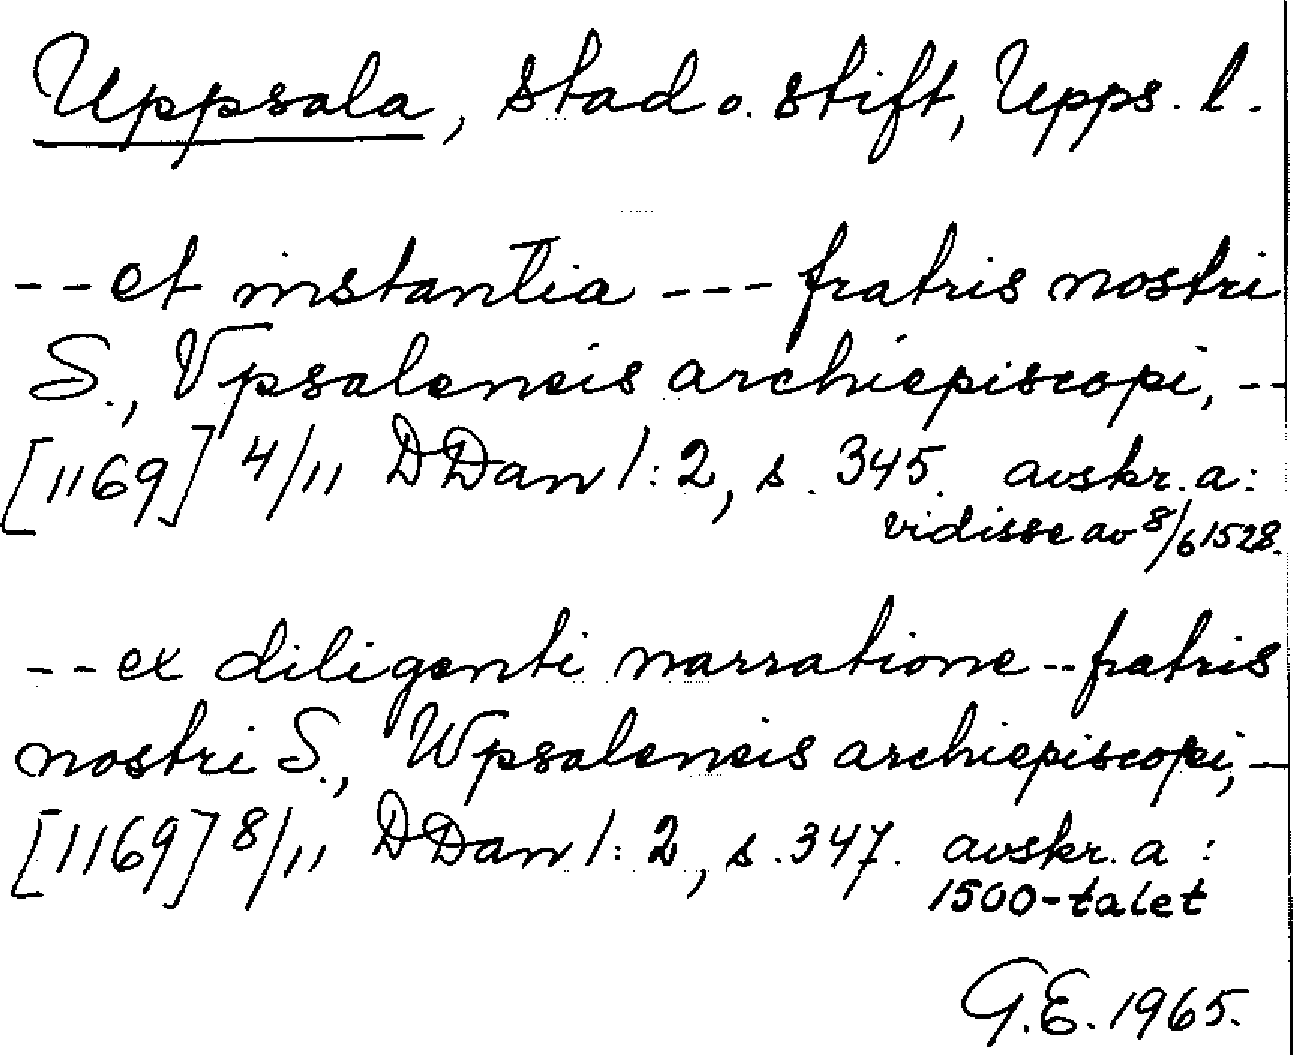 Uppsala, stad o. stift, Upps. l.
--et instantia --- fratris nostri
S., Vpsalensis archiepiscopi, --
[1169] 4/11 DDan 1:2, s. 345. avskr. a:
vidisse av 8/6 1528.
--ex diligenti narratione -- fratris
nostri S., Wpsalensis archiepiscopi, --
[1169] 8/11 DDan 1:2, s. 347. avskr. a:
1500-talet
G.E. 1965.